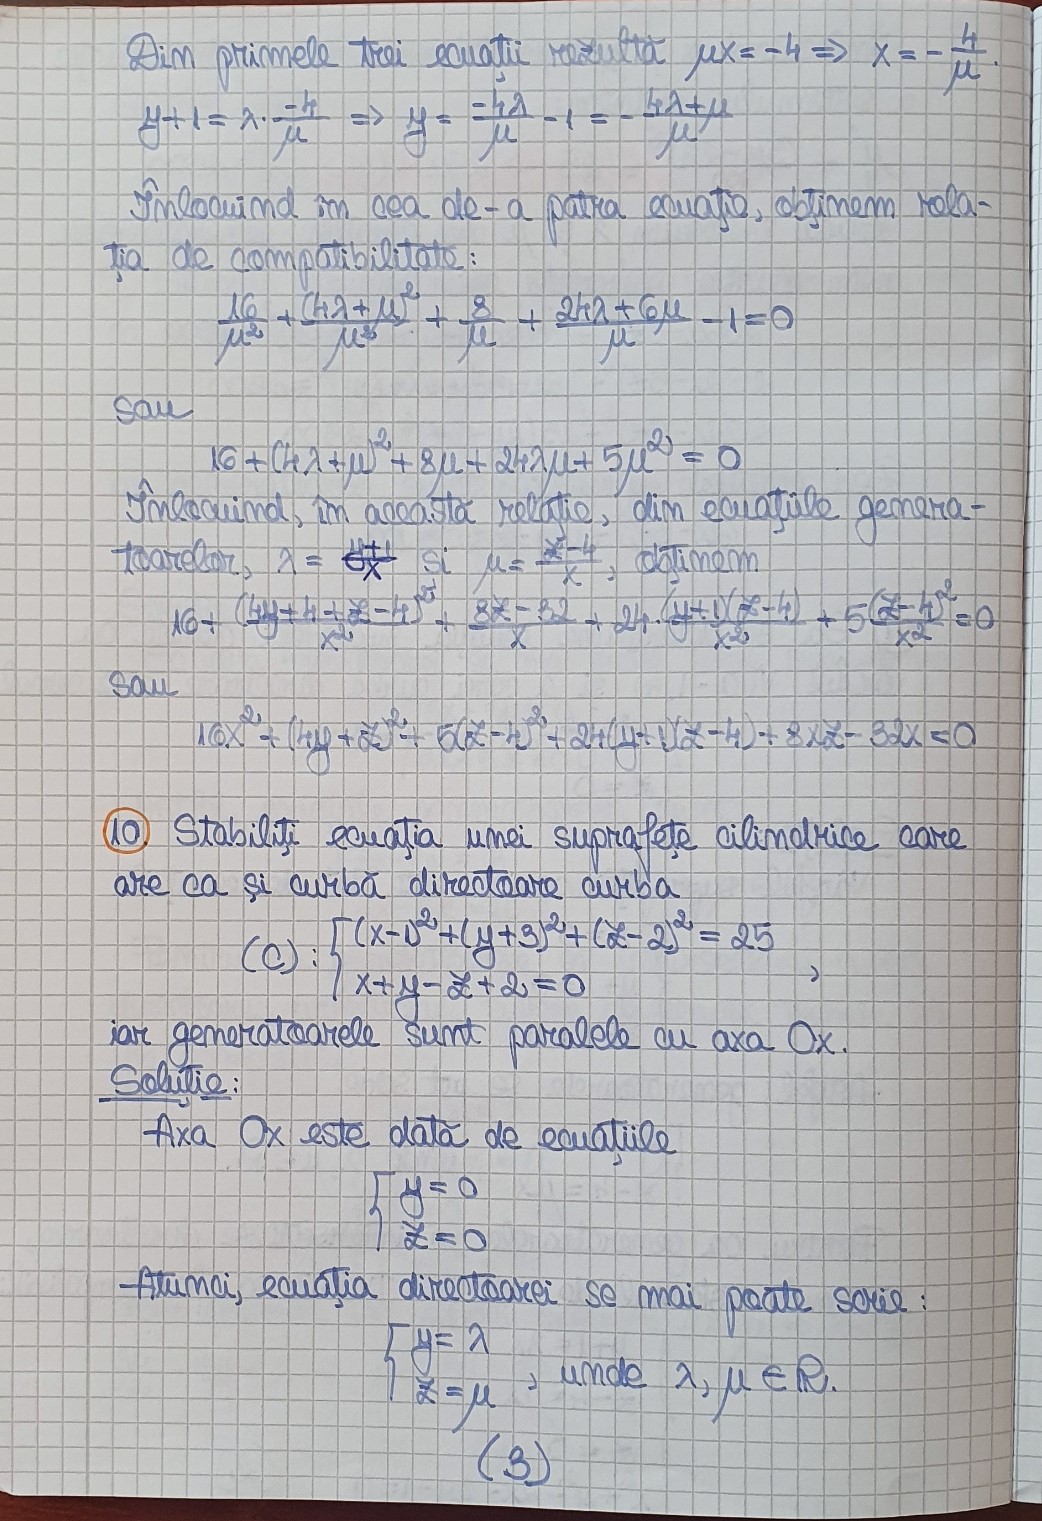 Din primele trei ecuații rezultă μx = -4 ⇒ x = -4/μ.
y+1 = λ·-4/μ ⇒ y = -4λ/μ - 1 = -4λ+μ/μ
Înlocuind în cea de-a patra ecuație, obținem rela-
ția de compatibilitate:
16/μ² + (4λ+μ)²/μ² + 8/μ + 24λ+6μ/μ - 1 = 0
sau
16 + (4λ+μ)² + 8μ + 24λμ + 5μ² = 0
Înlocuind, în această relație, din ecuațiile genera-
toarelor, λ = y+1/x și μ = z-4/x, obținem
16 + (4y+4+z-4)²/x² + 8z-32/x + 24·(y+1)(z-4)/x² + 5(z-4)²/x² = 0
sau
16x² + (4y+z)² + 5(z-4)² + 24(y+1)(z-4) + 8xz - 32x = 0
10) Stabiliți ecuația unei suprafețe cilindrice care
are ca și curbă directoare curba
(C): { (x-1)² + (y+3)² + (z-2)² = 25
x+y-z+2 = 0 ,
iar generatoarele sunt paralele cu axa Ox.
Soluție:
Axa Ox este dată de ecuațiile
{ y = 0
z = 0
Atunci, ecuația directoarei se mai poate scrie:
{ y = λ
z = μ , unde λ, μ ∈ ℝ.
(3)